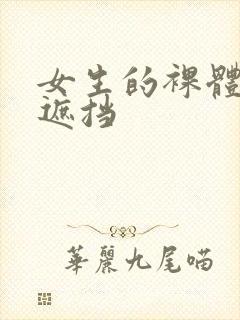 女生的裸體
遮挡
華麗九尾喵